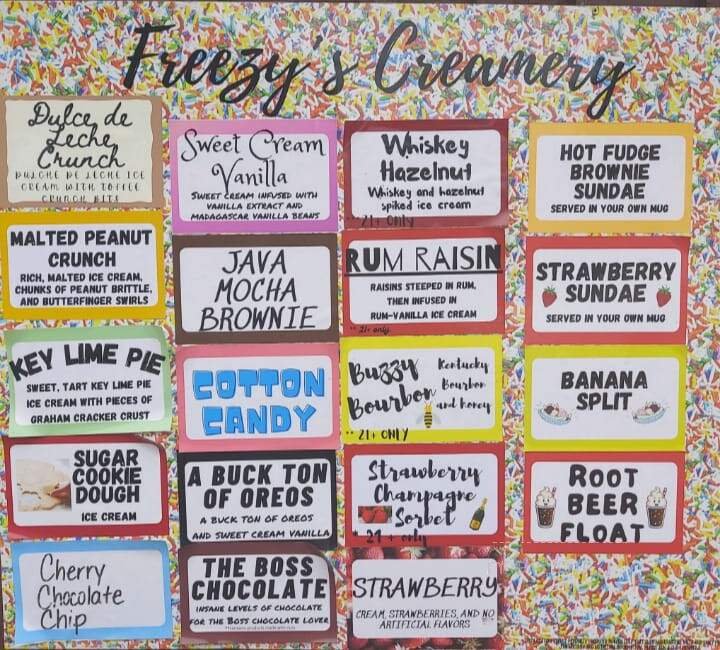 Freezy's Creamery
Dulce de
Leche
Crunch
DULCHE DE LECHE ICE
CREAM WITH TOFFEE
CRUNCH BITS
MALTED PEANUT
CRUNCH
RICH, MALTED ICE CREAM,
CHUNKS OF PEANUT BRITTLE,
AND BUTTERFINGER SWIRLS
KEY LIME PIE
SWEET, TART KEY LIME PIE
ICE CREAM WITH PIECES OF
GRAHAM CRACKER CRUST
SUGAR
COOKIE
DOUGH
ICE CREAM
Cherry
Chocolate
Chip
Sweet Cream
Vanilla
SWEET CREAM INFUSED WITH
VANILLA EXTRACT AND
MADAGASCAR VANILLA BEANS
JAVA
MOCHA
BROWNIE
COTTON
CANDY
A BUCK TON
OF OREOS
A BUCK TON OF OREOS
AND SWEET CREAM VANILLA
THE BOSS
CHOCOLATE
INSANE LEVELS OF CHOCOLATE
FOR THE BOSS CHOCOLATE LOVER
Whiskey
Hazelnut
Whiskey and hazelnut
spiked ice cream
**21+ Only
RUM RAISIN
RAISINS STEEPED IN RUM,
THEN INFUSED IN
RUM-VANILLA ICE CREAM
** 21+ only
Buzzy
Bourbon
Kentucky
Bourbon
and Honey
** 21+ ONLY
Strawberry
Champagne
Sorbet
* 21 + only
STRAWBERRY
CREAM, STRAWBERRIES, AND NO
ARTIFICIAL FLAVORS
HOT FUDGE
BROWNIE
SUNDAE
SERVED IN YOUR OWN MUG
STRAWBERRY
SUNDAE
SERVED IN YOUR OWN MUG
BANANA
SPLIT
ROOT
BEER
FLOAT